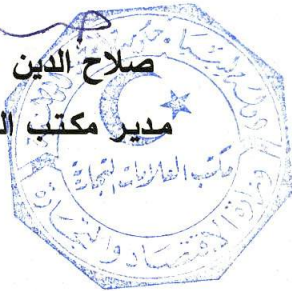 صلاح الدين
مدير مكتب ال
مكتب العلامات التجارية
وزارة الاقتصاد والتجارة